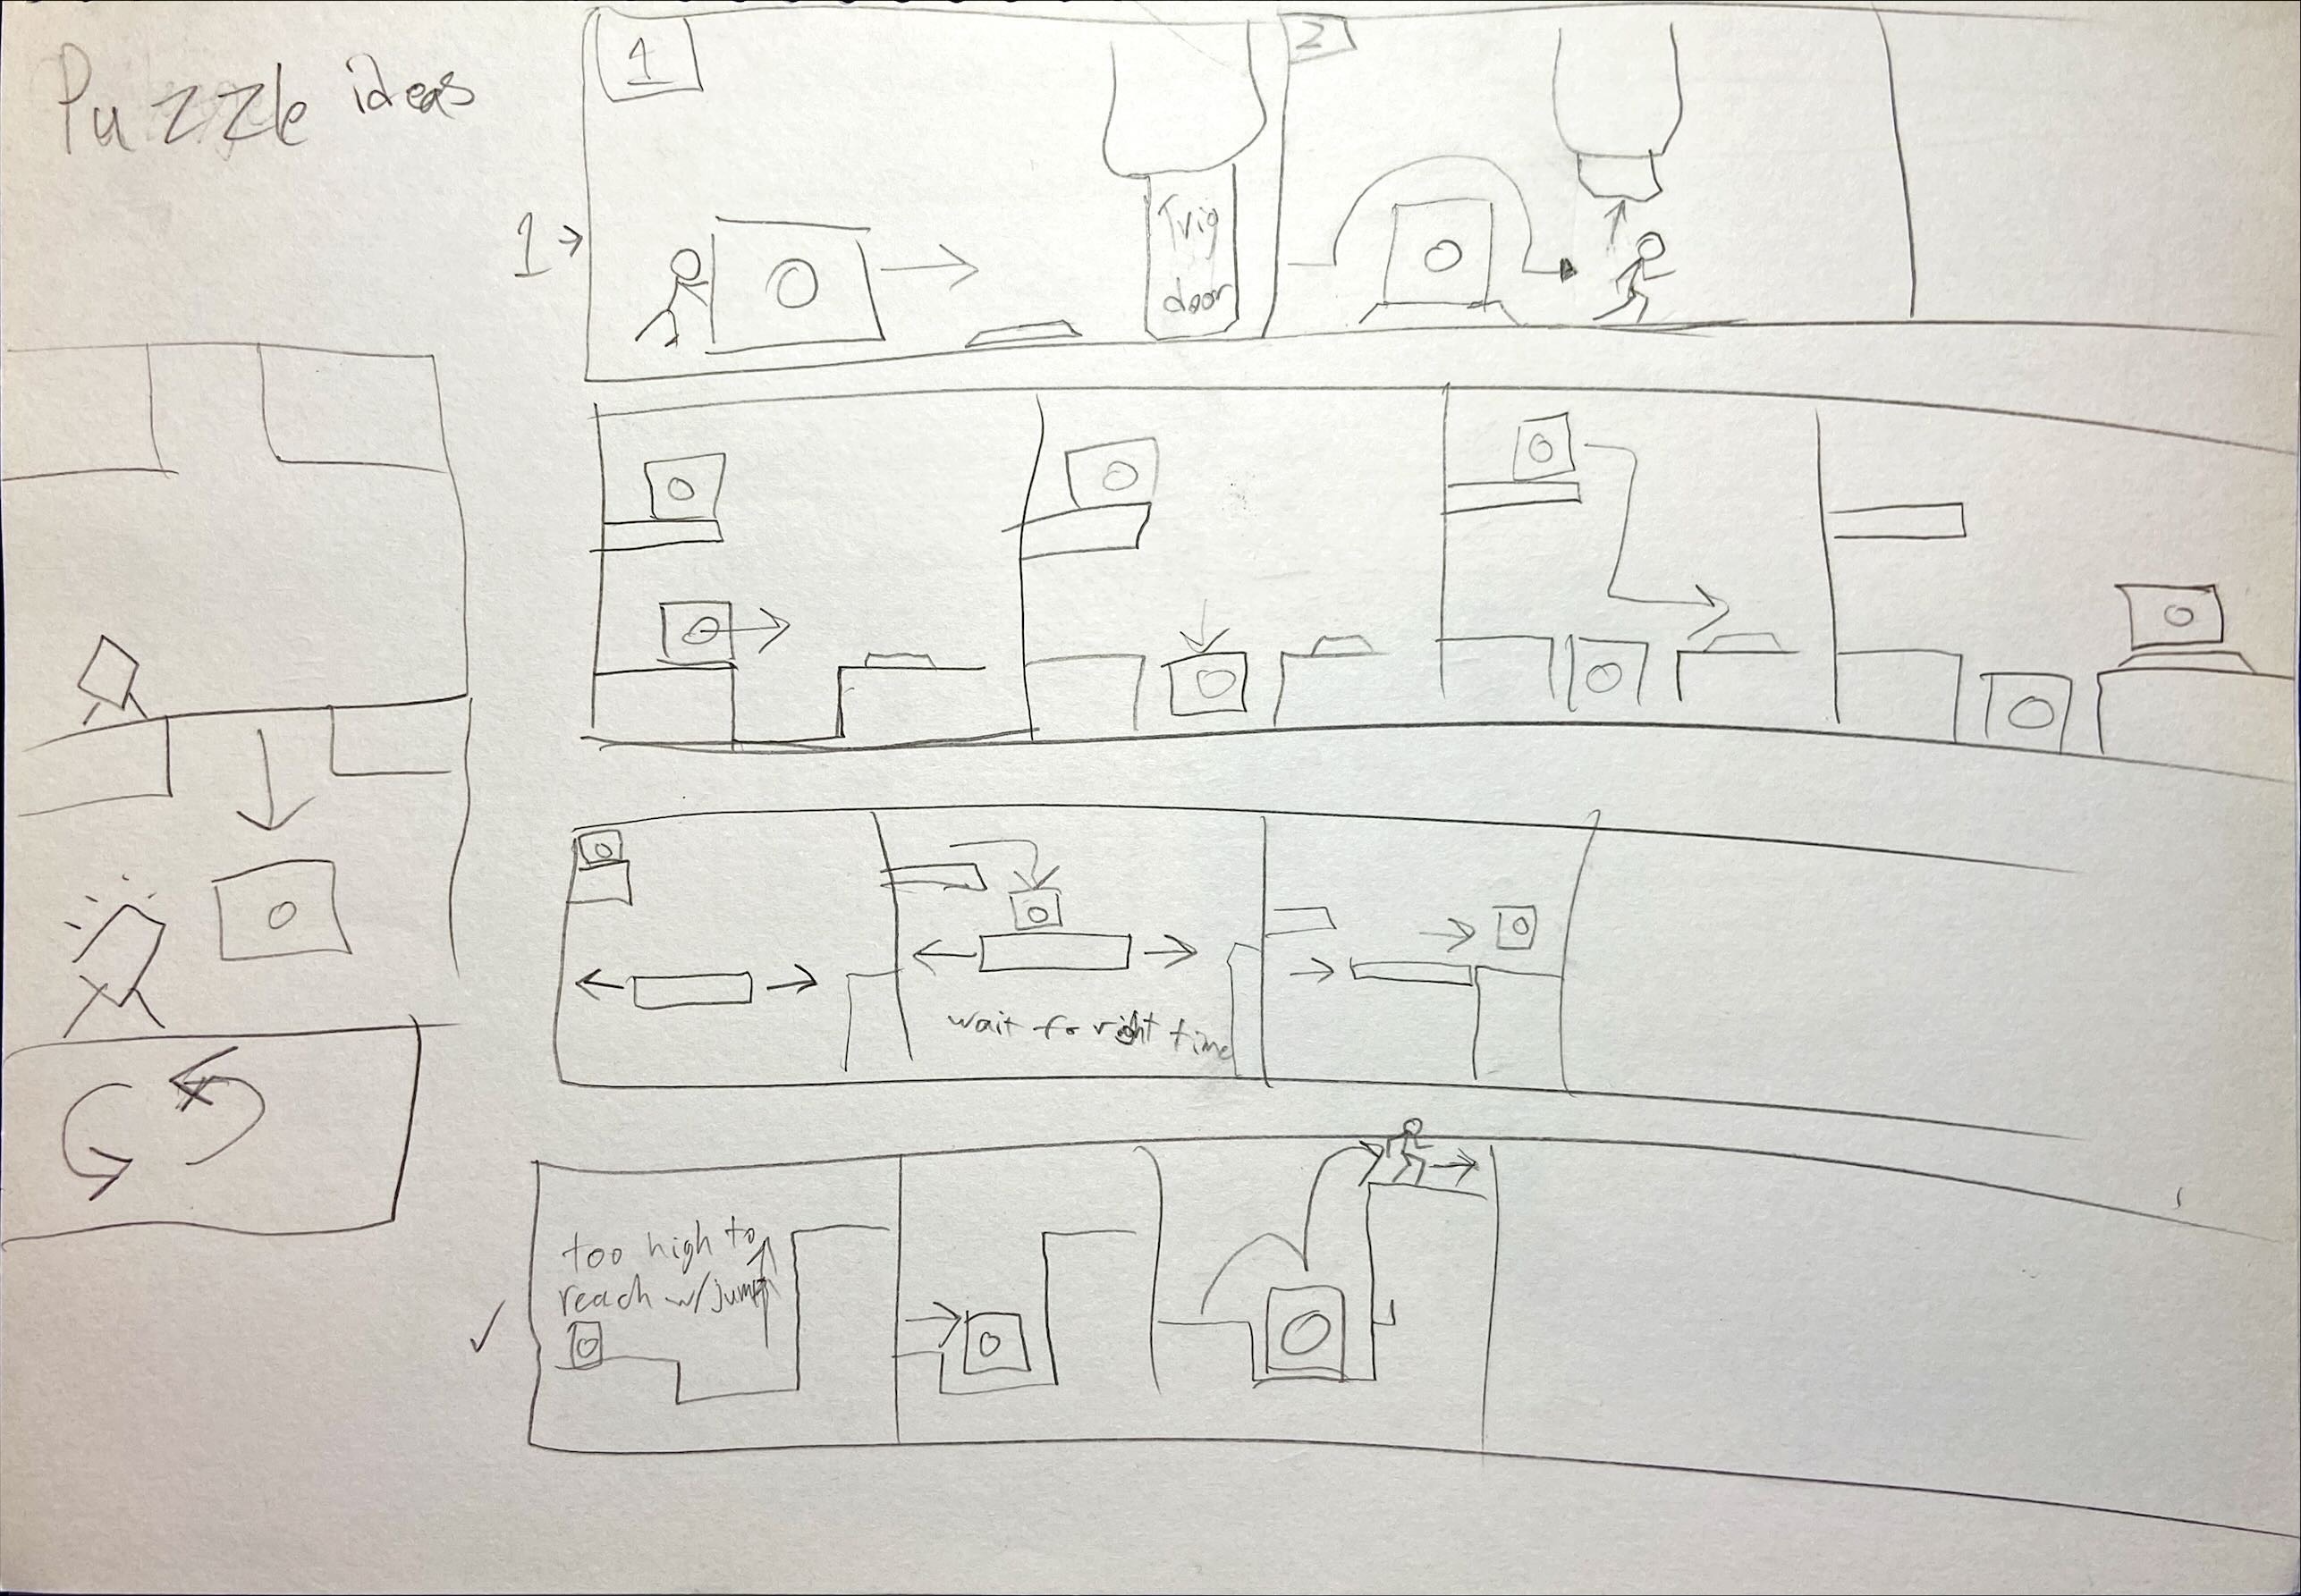 Puzzle ideas
1
2
1→
Trig
door
wait for right time
too high to
reach w/jump